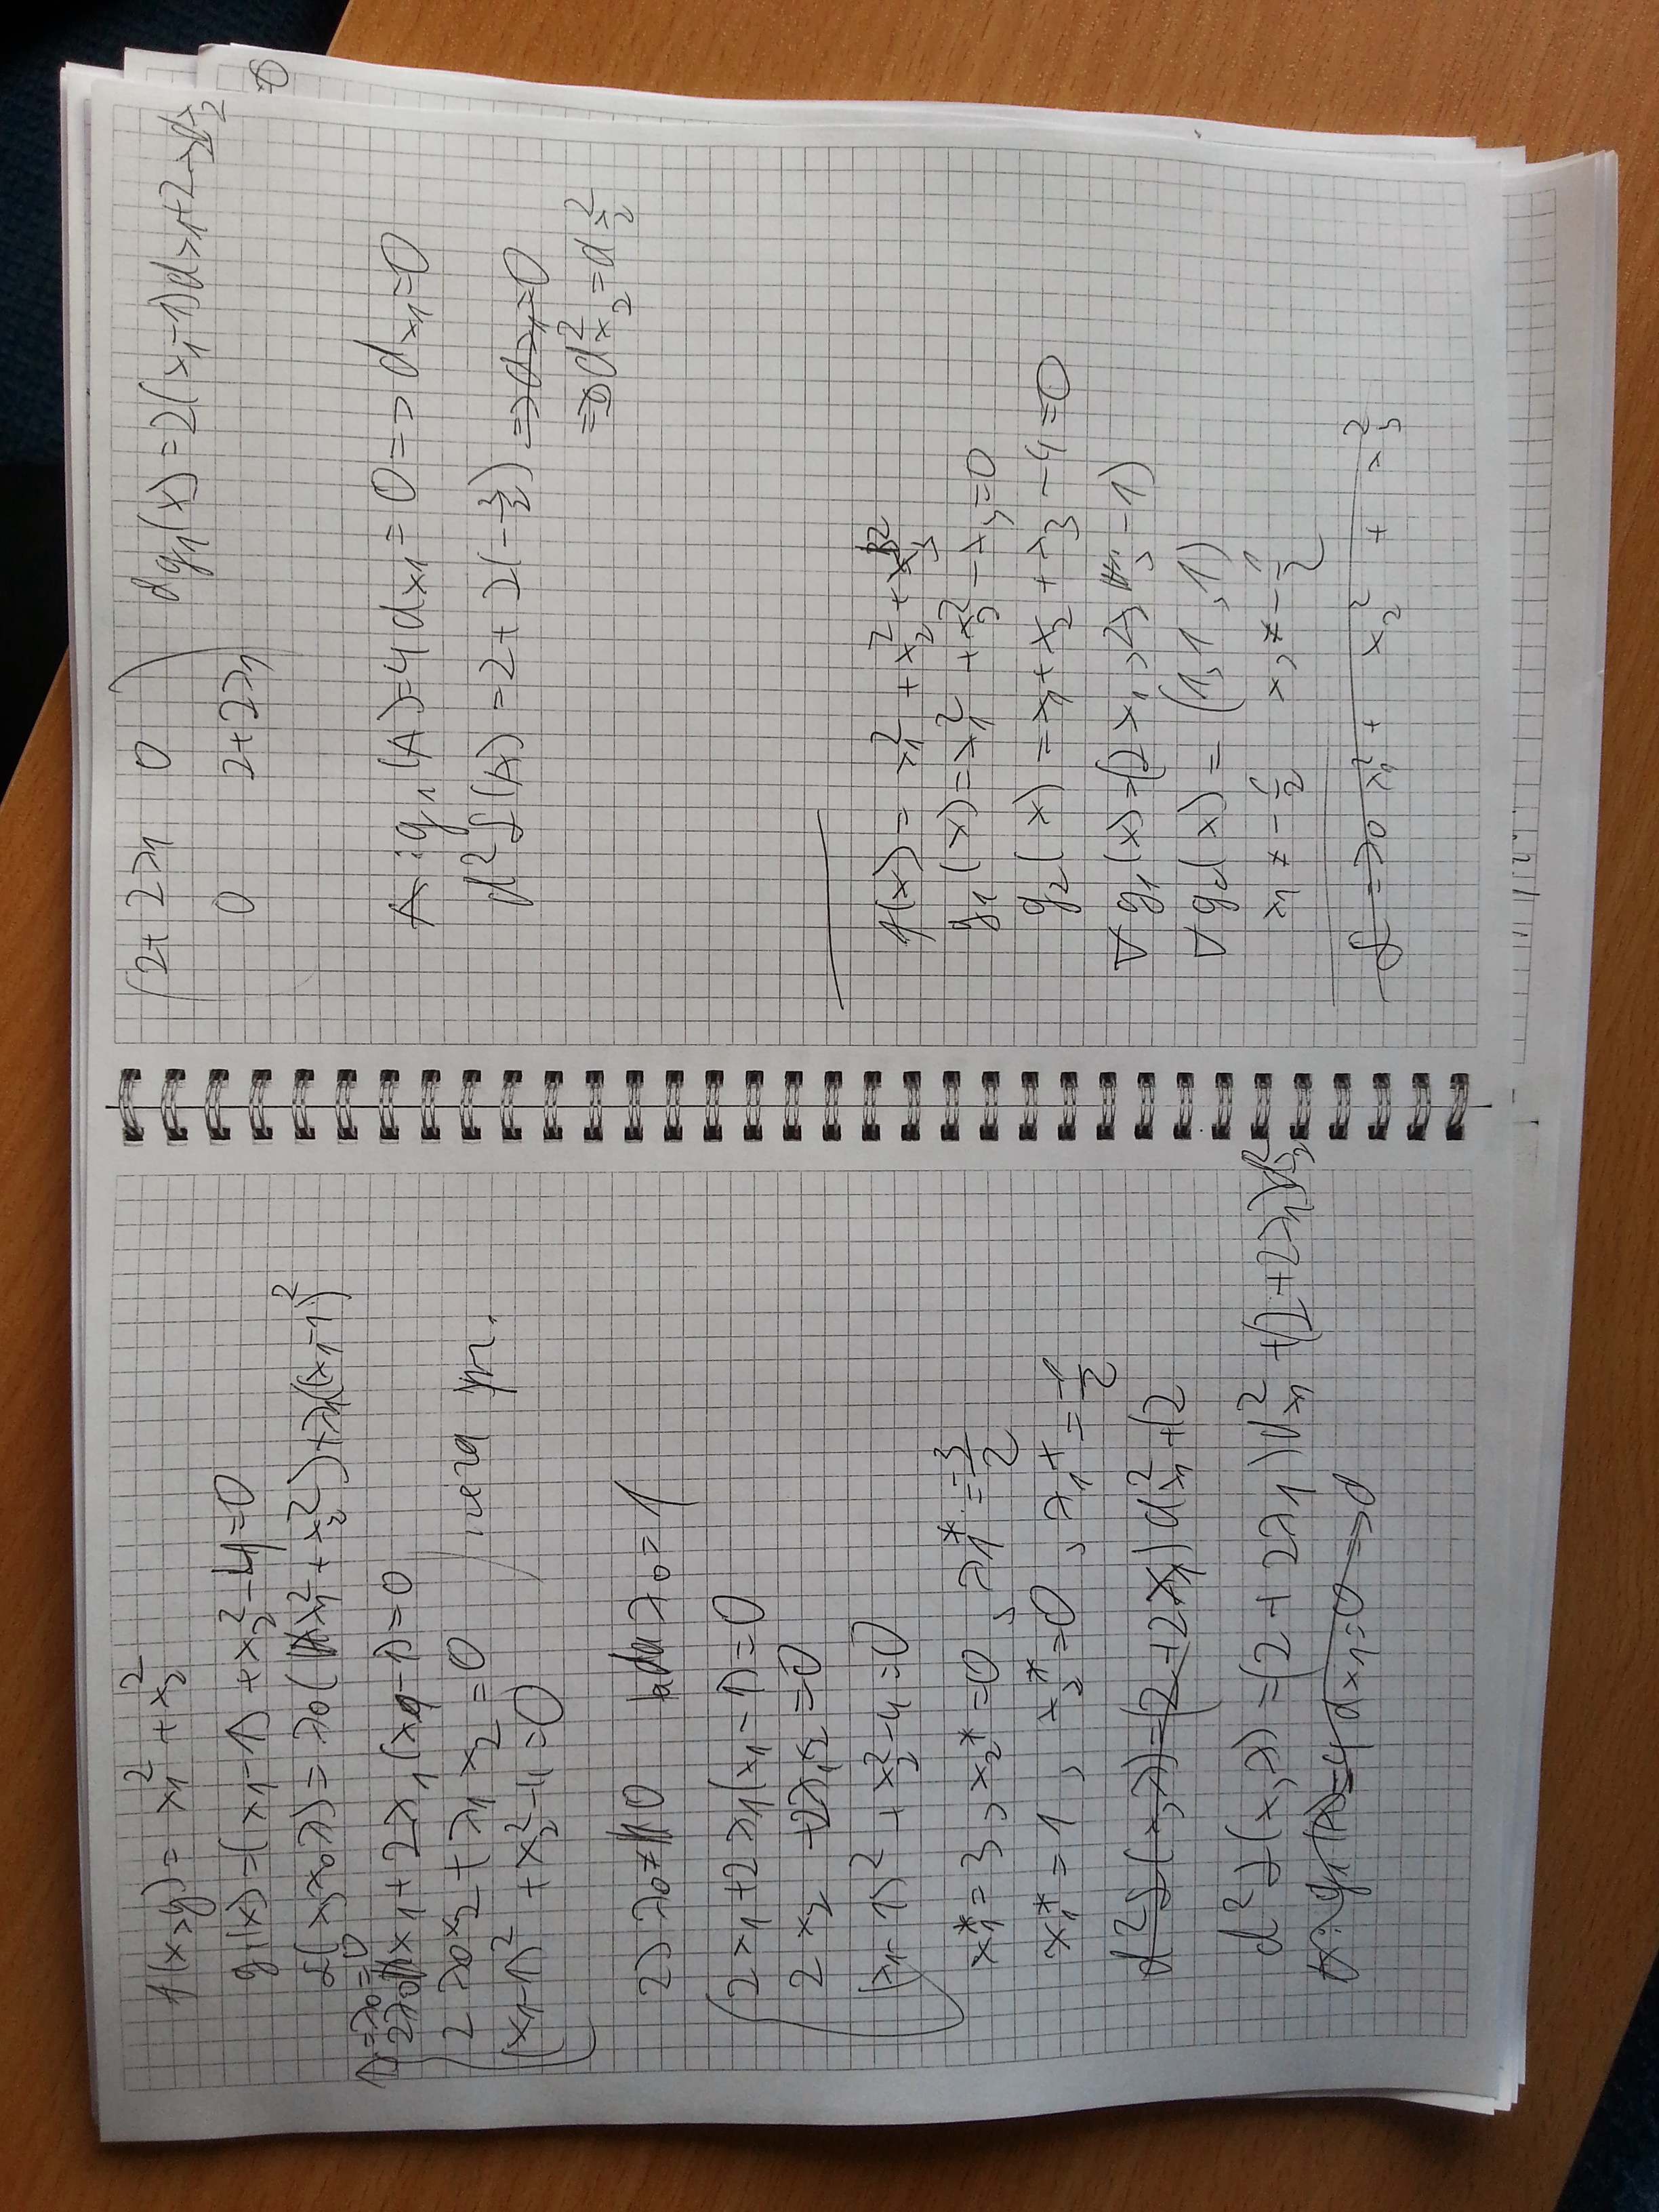 f(x,y) = x₁² + x₂²
g₁(x) = (x₁-1) + x₂² - 4 = 0
ℒ(x, λ₀ λ) = λ₀(x₁² + x₂²) + λ₁((x₁-1)²
1) = λ₀ = 0
2λ₀x₁ + 2λ₁(x₁-1) = 0
2λ₀x₂ + λ₁x₂ = 0
(x₁-1)² + x₂² - 4 = 0
2) λ₀ ≠ 0 λ₀ = 1
2x₁ + 2λ₁(x₁-1) = 0
2x₂ + 2λ₁x₂ = 0
(x₁-1)² + x₂² - 4 = 0
x₁* = 3, x₂* = 0, λ₁* = -3/2
x₁* = 1, x₂* = 0, λ₁* = -1/2
d²ℒ(x,λ) = (2+2λ₁)dx₁² + (2
d²ℒ(x,λ) = (2+2λ₁)dx₁² + (2+2λ₁)dx₂²
A: g₁(A) = 4dx₁ = 0 => d
2+2λ₁ 0
0 2+2λ₁
dg₁(x) = 2(x₁-1)dx₁ + 2x₂dx₂
=0
A: g₁(A) = 4dx₁ = 0 => dx₁ = 0
d²ℒ(A) = 2 + 2(-3/2) => dx₁ = 0
=> dx₂² = dx₂²
f(x) = x₁² + x₂² + x₃²
g₁(x) = x₁² + x₂² - x₃ = 0
g₂(x) = x₁ + x₂ + x₃ - 4 = 0
∇g₁(x) = (2x₁, 2x₂, -1)
∇g₂(x) = (1, 1, 1)
x₁ ≠ -1/2 x₂ ≠ -1/2
ℒ = λ₀ x₁² + x₂² + x₃²